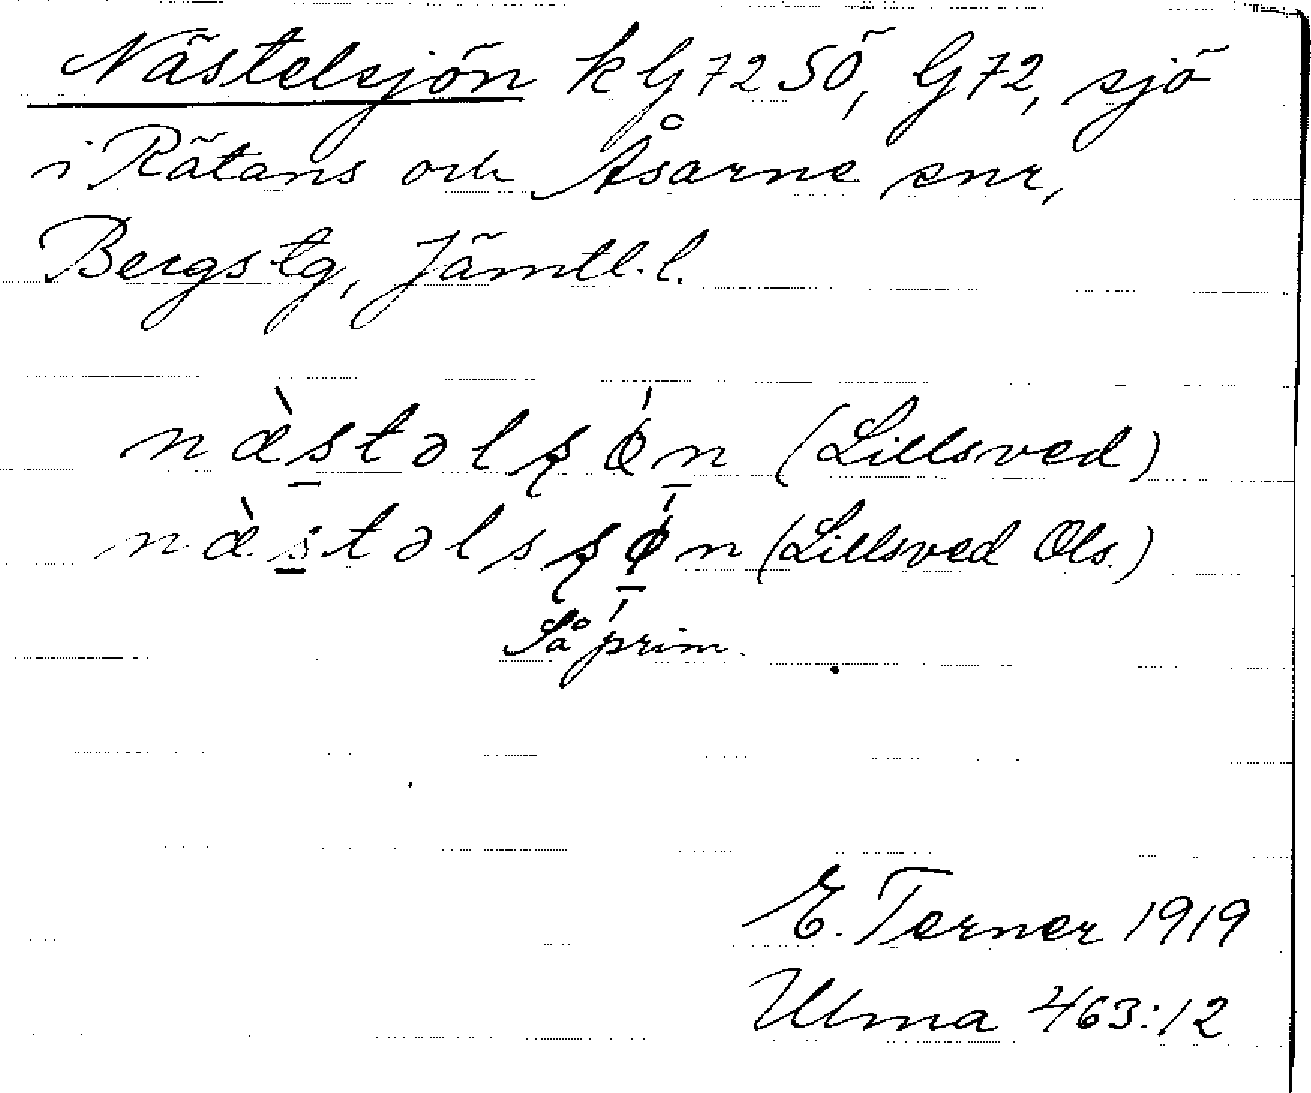 Nästelsjön k G72 SÖ, G72, sjö
i Rätans och Åsarne snr,
Bergs tg, Jämtl. l.
næ̀s̲təlʂǿn̲ (Lillsved)
næ̀s̲təlsʂǿ̲n (Lillsved Ols.)
Så prim.
E. Terner 1919
Ulma 463:12